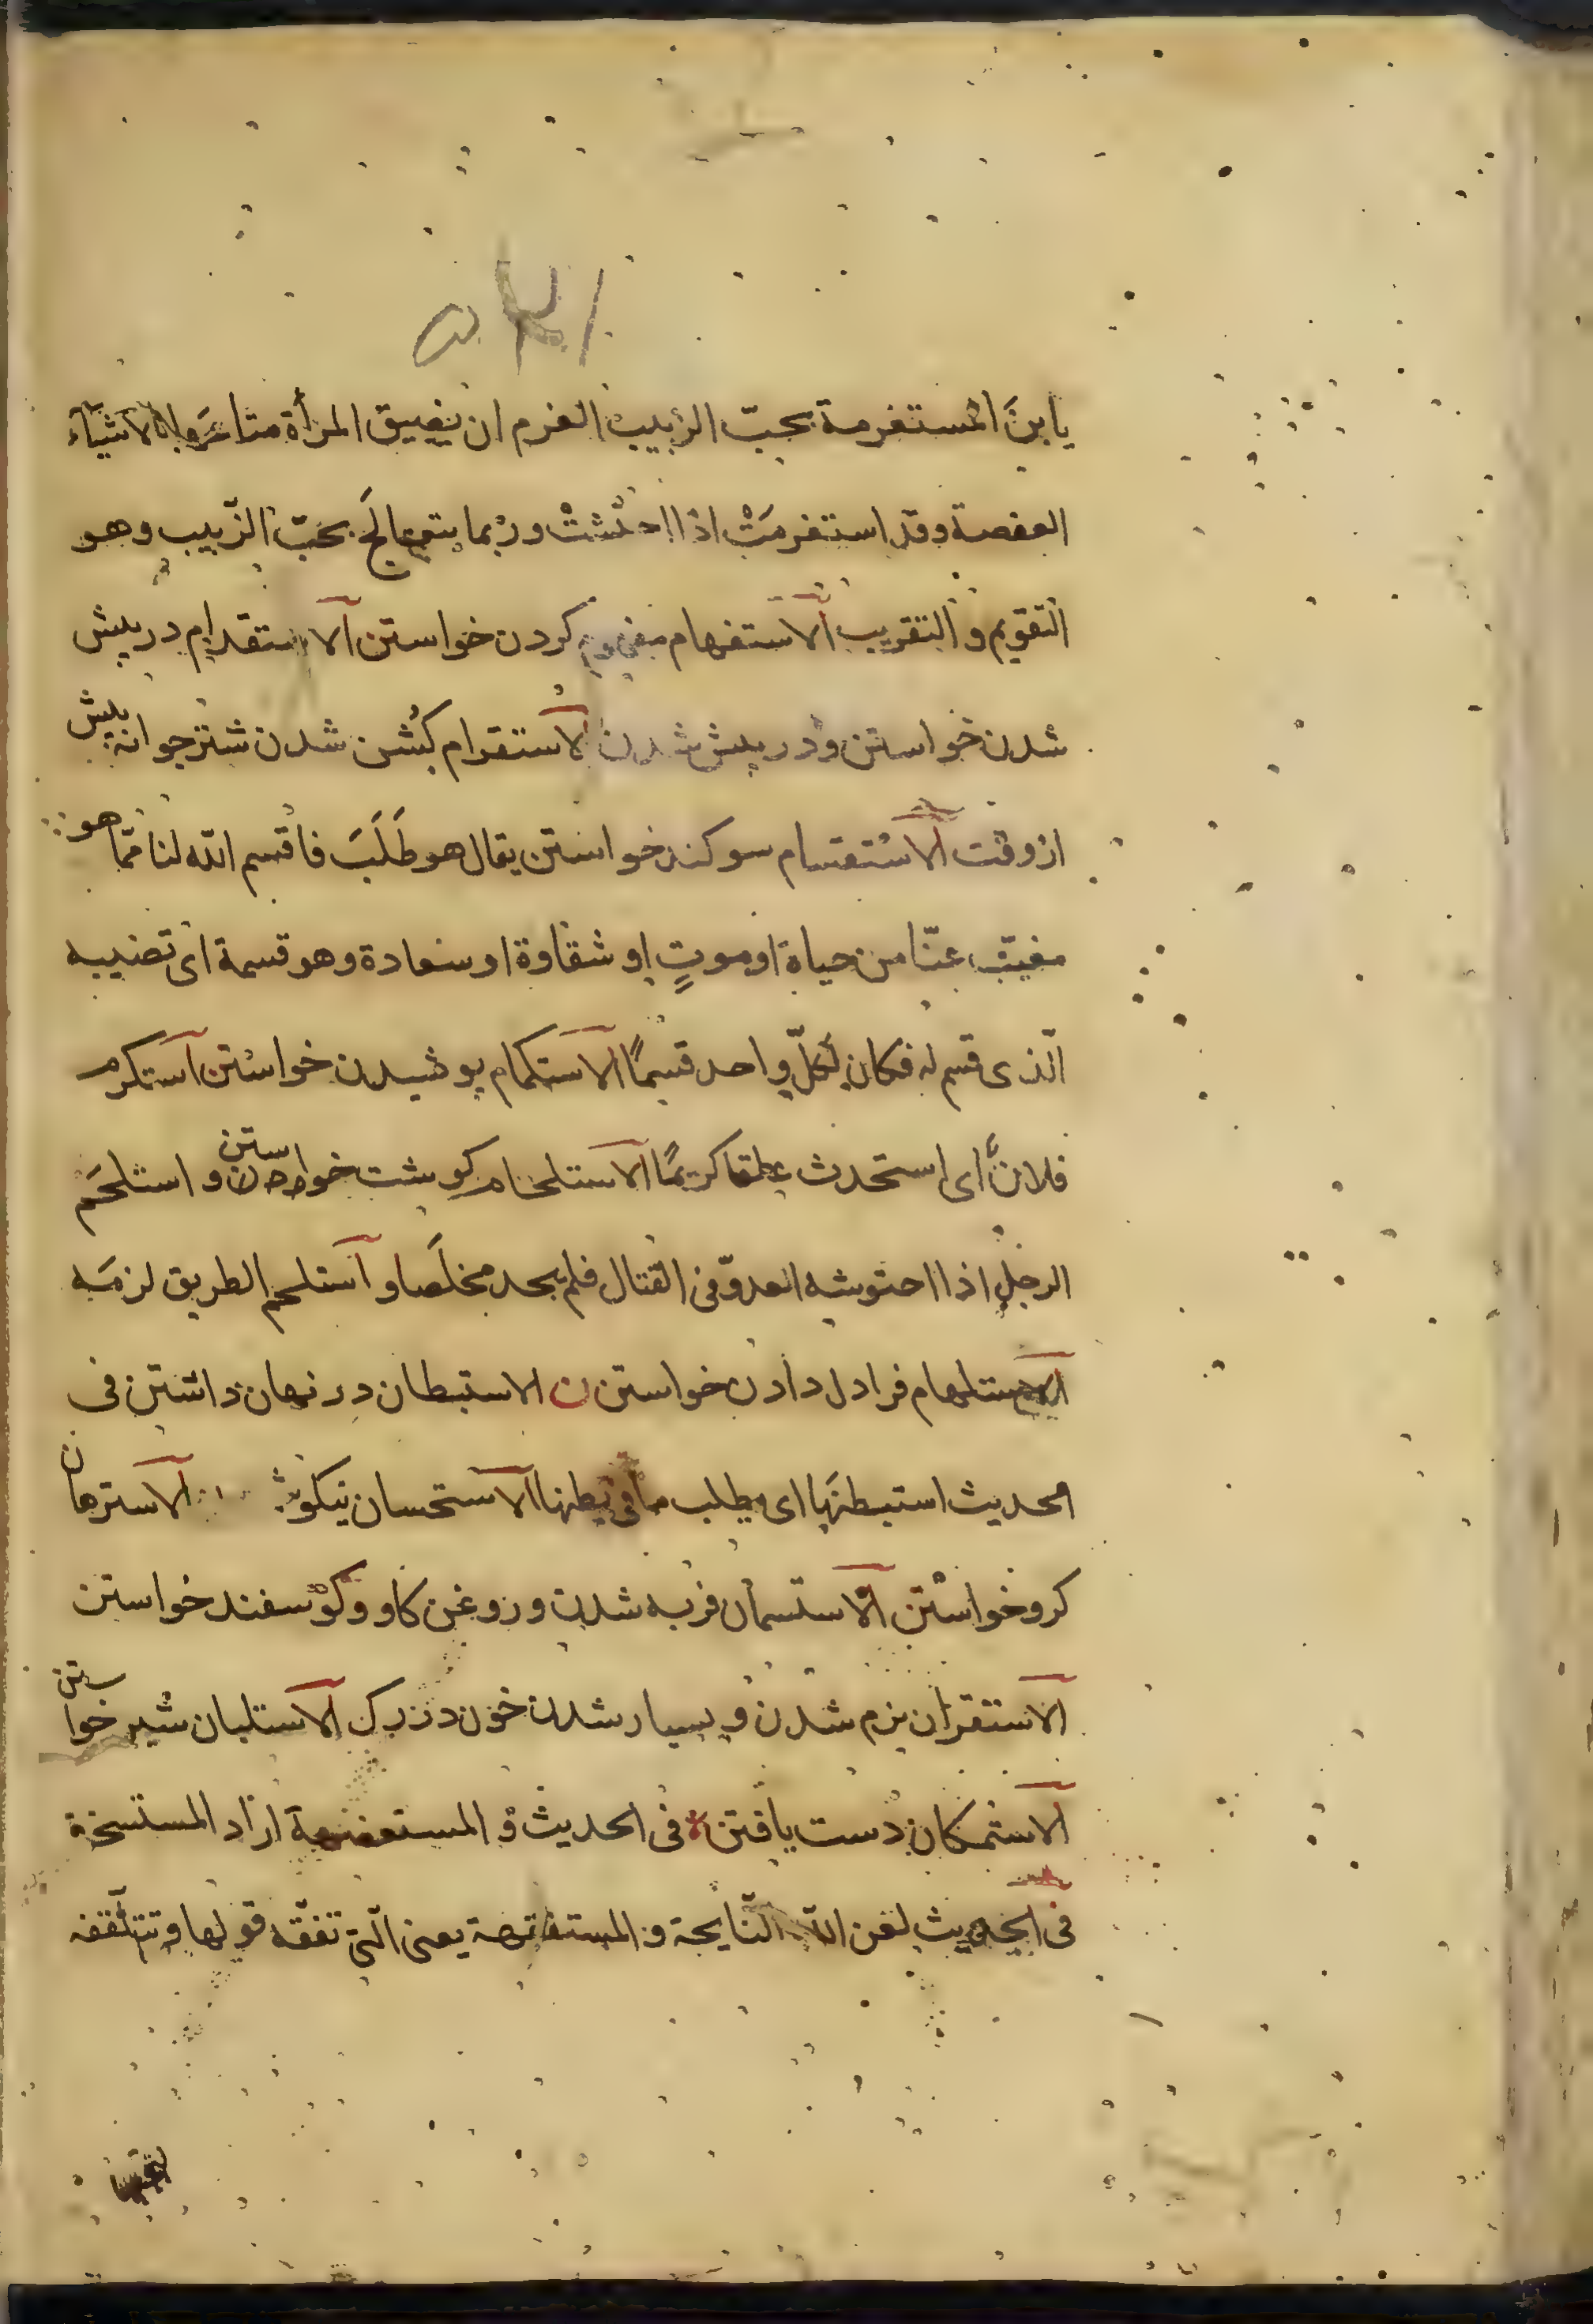 یا بنَ المستفرمة بحبّ الزبیب الفرم ان یضیق المرأة متاعَها بالاشیآء
العفصة وقد استفرمَتْ اذا احتشتْ وربما یتعالَج بحبّ الزّبیب وهو
التقویم والتقریب الاستفهام مفهوم کردن خواستن الاستقدام در پیش
شدن خواستن ودر پیش شدن الاستقرام کُشن شدن شتر جوانه پیش
از وقت الاستقسام سوکند خواستن یقال هو طَلَبَ فاقسم الله لنا ممّا هو
مغیّب عنّا من حیاة او موتٍ او شقاوة او سعادة وهو قسمة ای تصیبه
الّذی قسم له فکان لکلّ واحد قسیمًا الاستکمام پوشیدن خواستن استکرم
فلانٌ ای استحدث علقا کریمًا الاستلحام کوشت خواستن و استلحَم
الرجل اذا احتوشه العدوّ فی القتال فلم یجد مخلَصا و استلحم الطریق لزمَه
الاستلهام فرا دل دادن خواستن ن الاستبطان در نهان داشتن فی
الحدیث استبطنَها ای یطلب ما فی بطنها الاستحسان نیکو الاسترهان
کرو خواستن الاستسمان فربه شدن و روغن کاو و کوسفند خواستن
الاستقران نرم شدن و بسیار شدن خون در رک الاستلبان شیر خواستن
الاستمکان دست یافتن ه فی الحدیث و المستعضهة اراد المستسخرة
فی الحدیث لعن الله النّایحة و المستفقهة یعنی الّتی تفقّه قولها و تتلقّفه